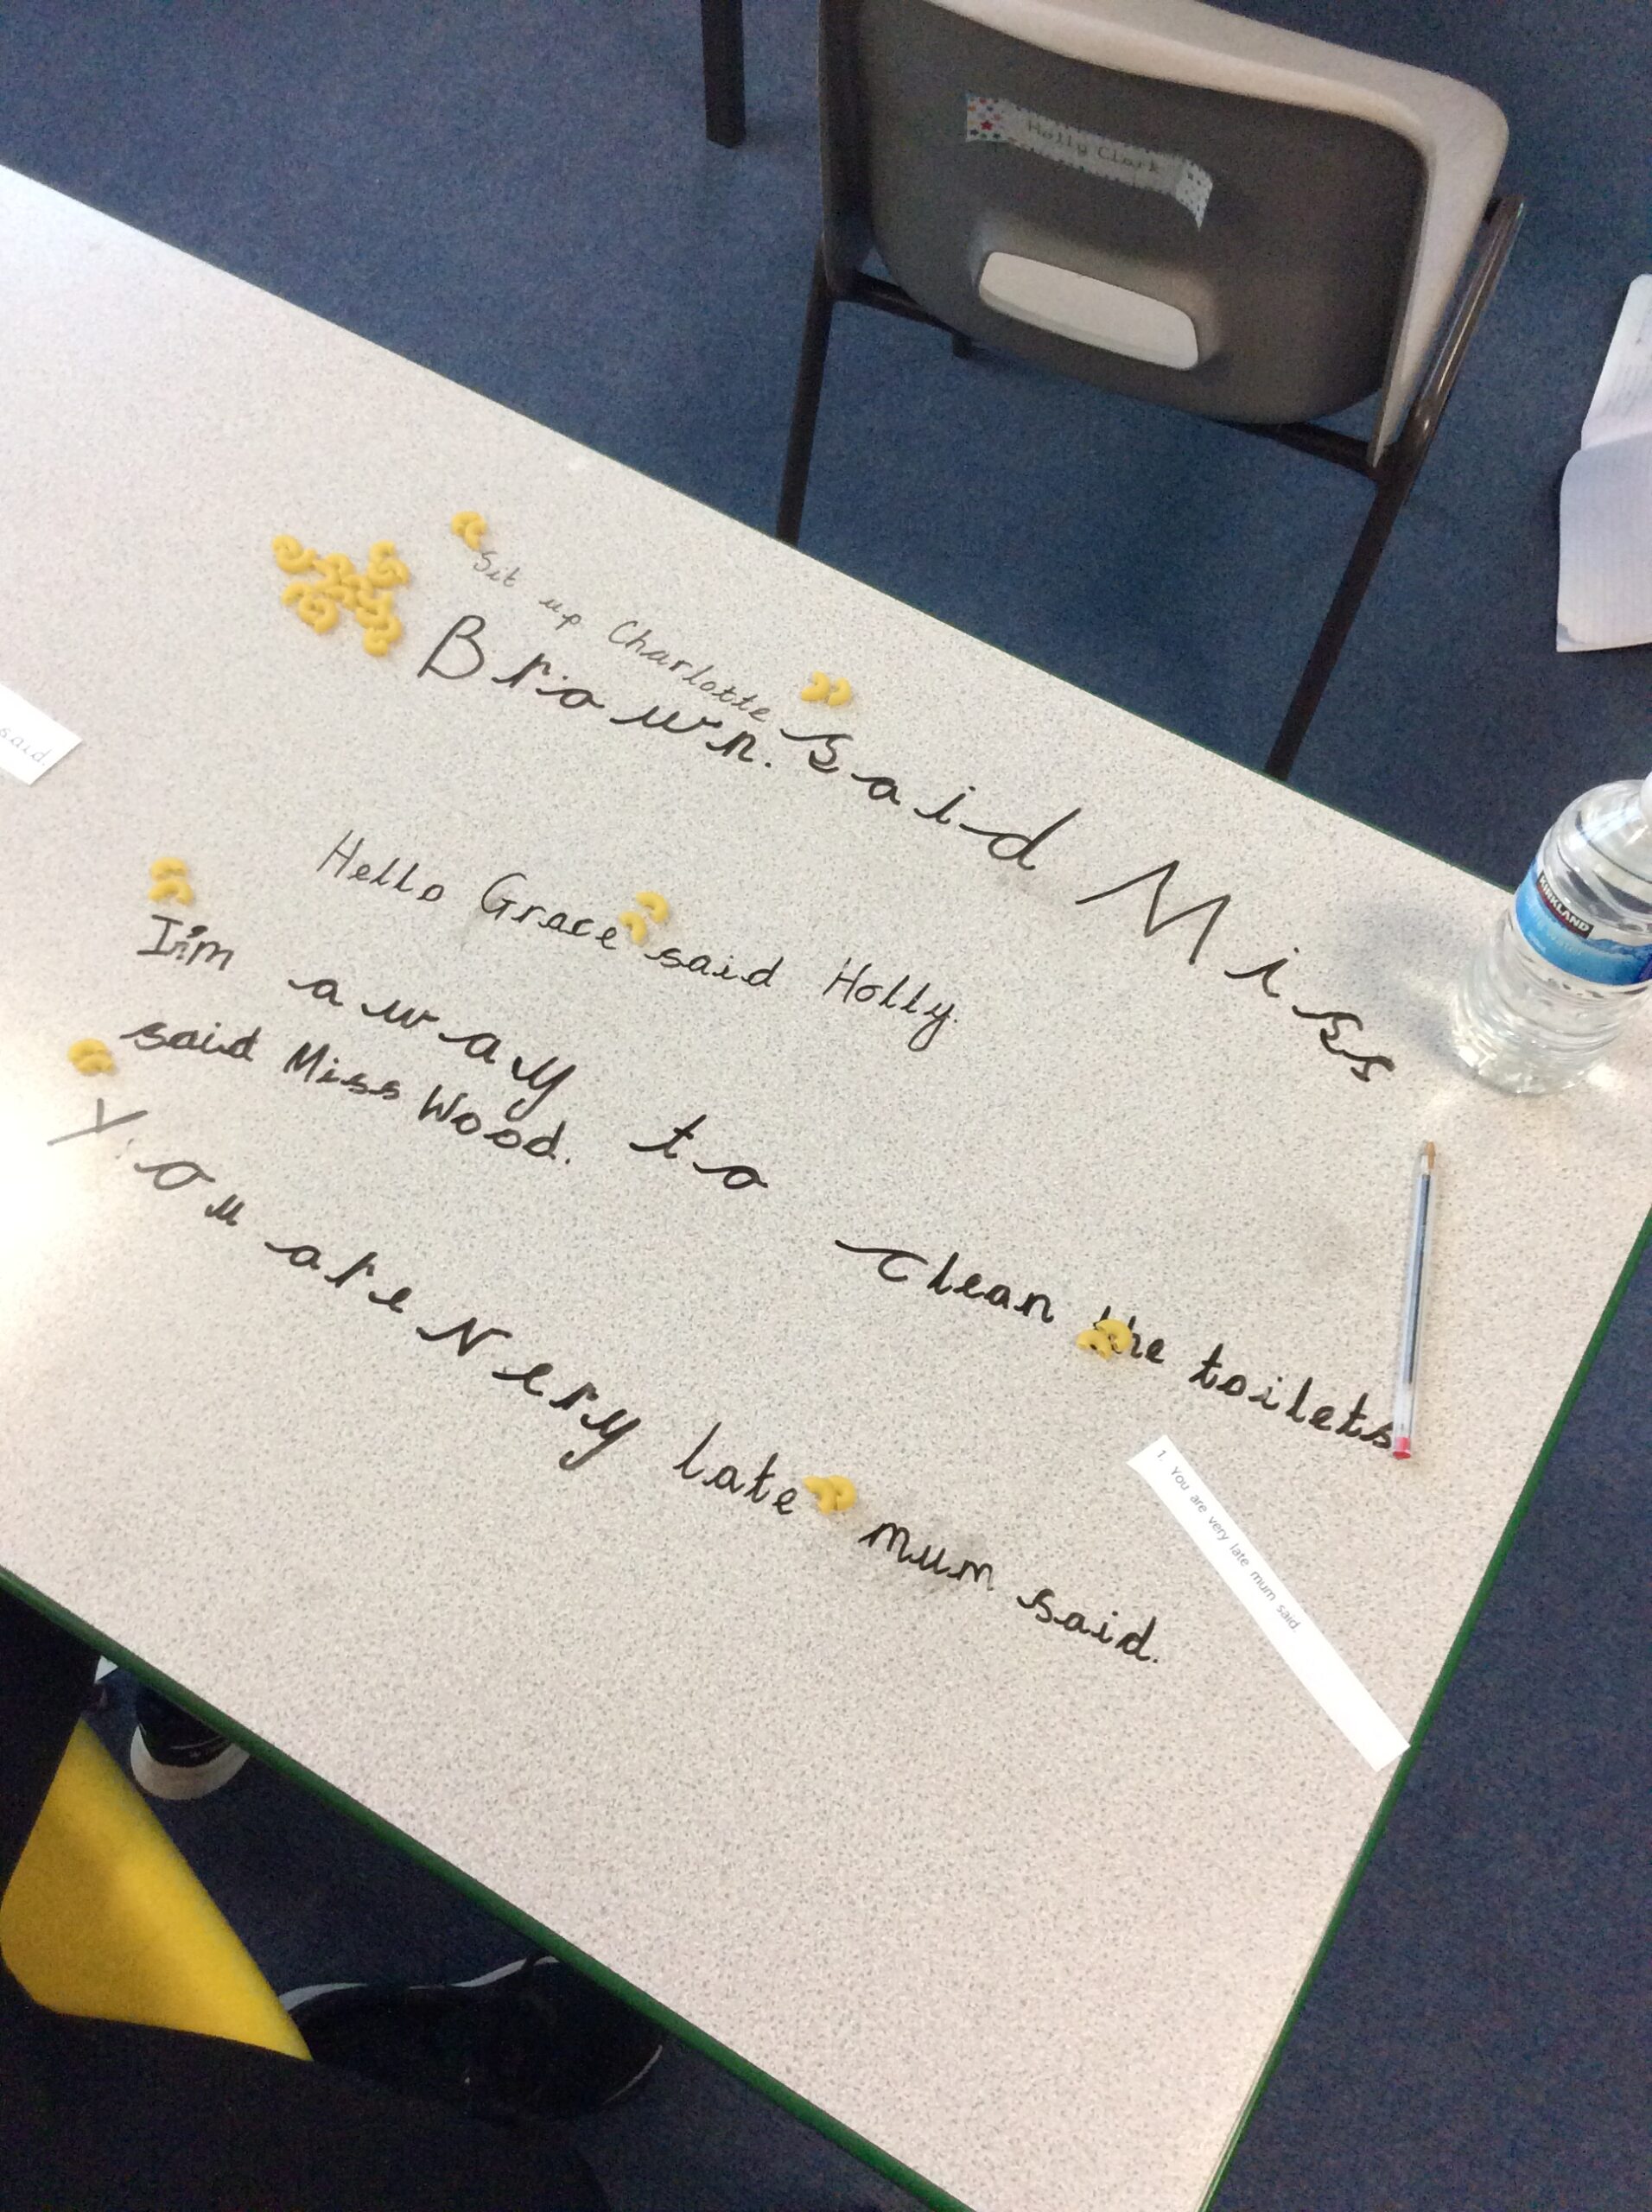 Holly Clark
Sit up Charlotte said Miss
Brown.
Hello Grace said Holly.
I'm away to clean the toilets
said Miss Wood.
You are very late mum said.
1. You are very late mum said.
said.
KIRKLAND